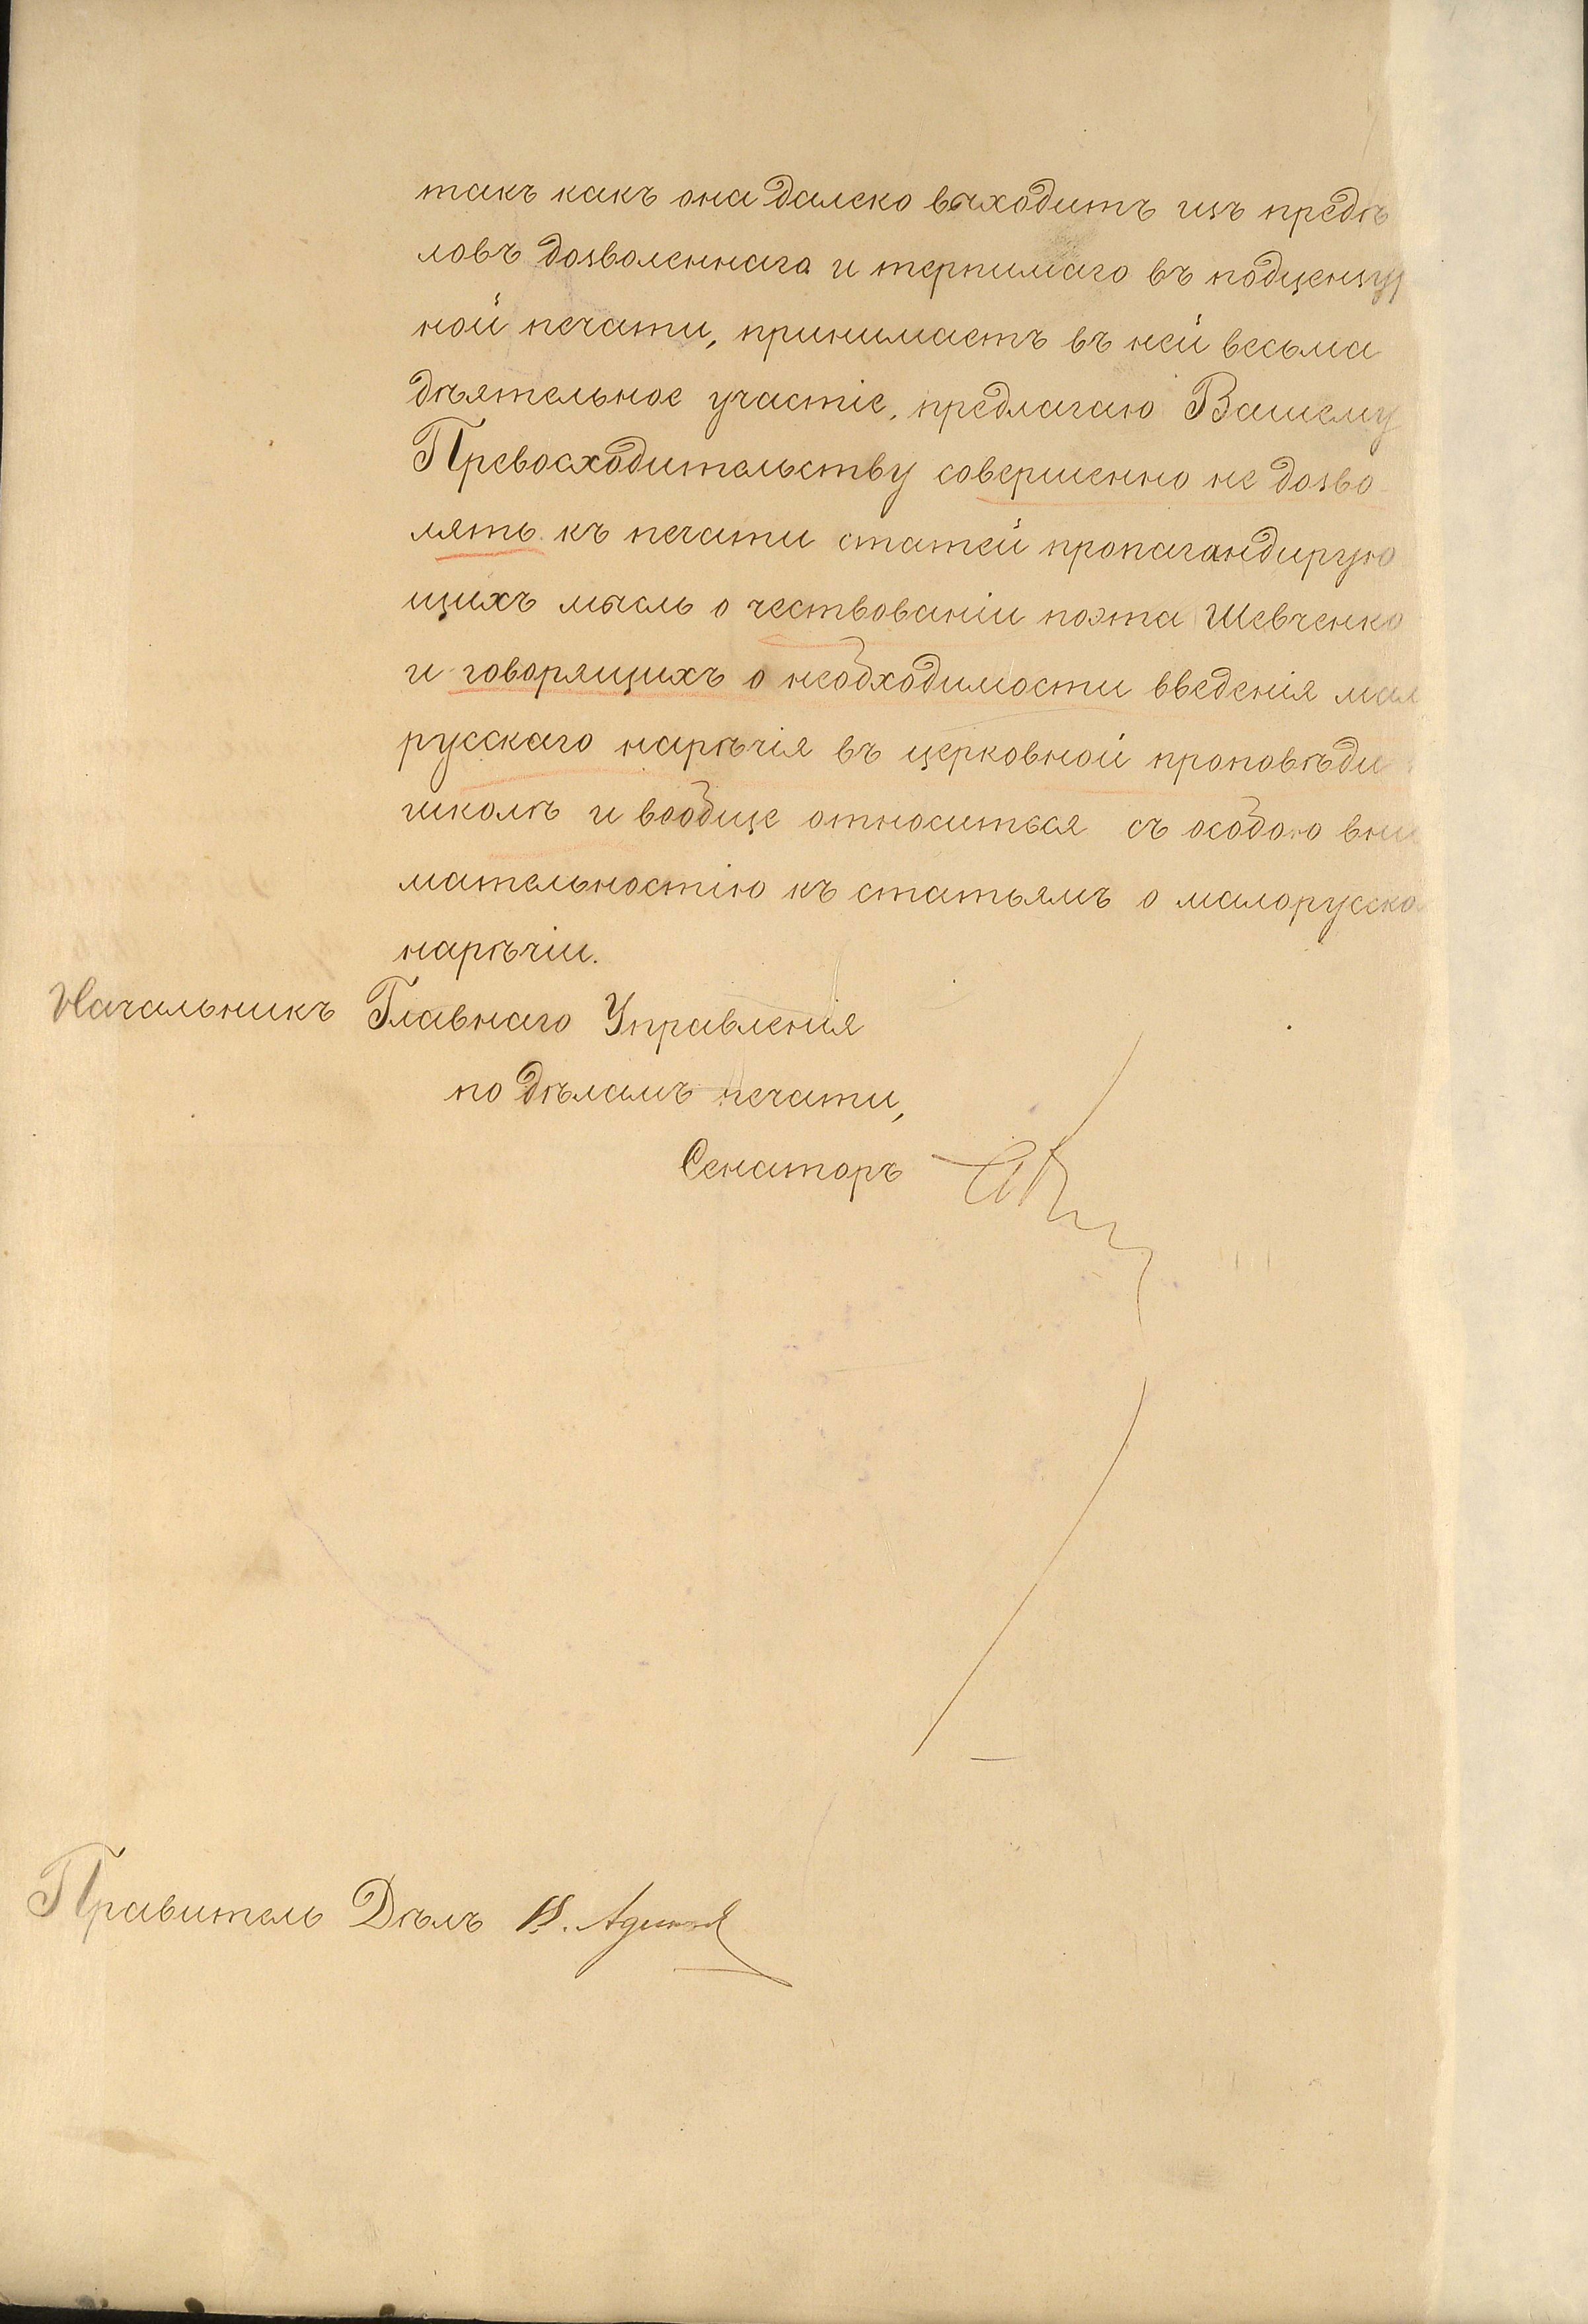 такъ какъ она далеко выходитъ изъ предѣ
ловъ дозволеннаго и терпимаго въ подцензур
ной печати, принимаетъ въ ней весьма
дѣятельное участіе, предлагаю Вашему
Превосходительству совершенно не дозво
лять къ печати статей пропагандирую
щихъ мысль о чествованіи поэта Шевченко
и говорящихъ о необходимости введенія мал
русскаго нарѣчія въ церковной проповѣди
школѣ и вообще относиться съ особою вни
мательностію къ статьямъ о малорусско
нарѣчіи.
Начальникъ Главнаго Управленія
по дѣламъ печати,
Сенаторъ
Правитель Дѣлъ В.